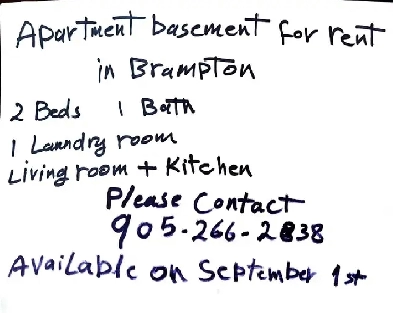 Apartment basement for rent
in Brampton
2 Beds 1 Bath
1 Laundry room
Living room + Kitchen
Please Contact
905-266-2838
Available on September 1st